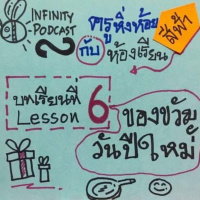 INFINITY
PODCAST
2
ครูหิ่งห้อย
กับ ห้องเรียน
สีฟ้า
บทเรียนที่
Lesson
6
ของขวัญ
วันปีใหม่